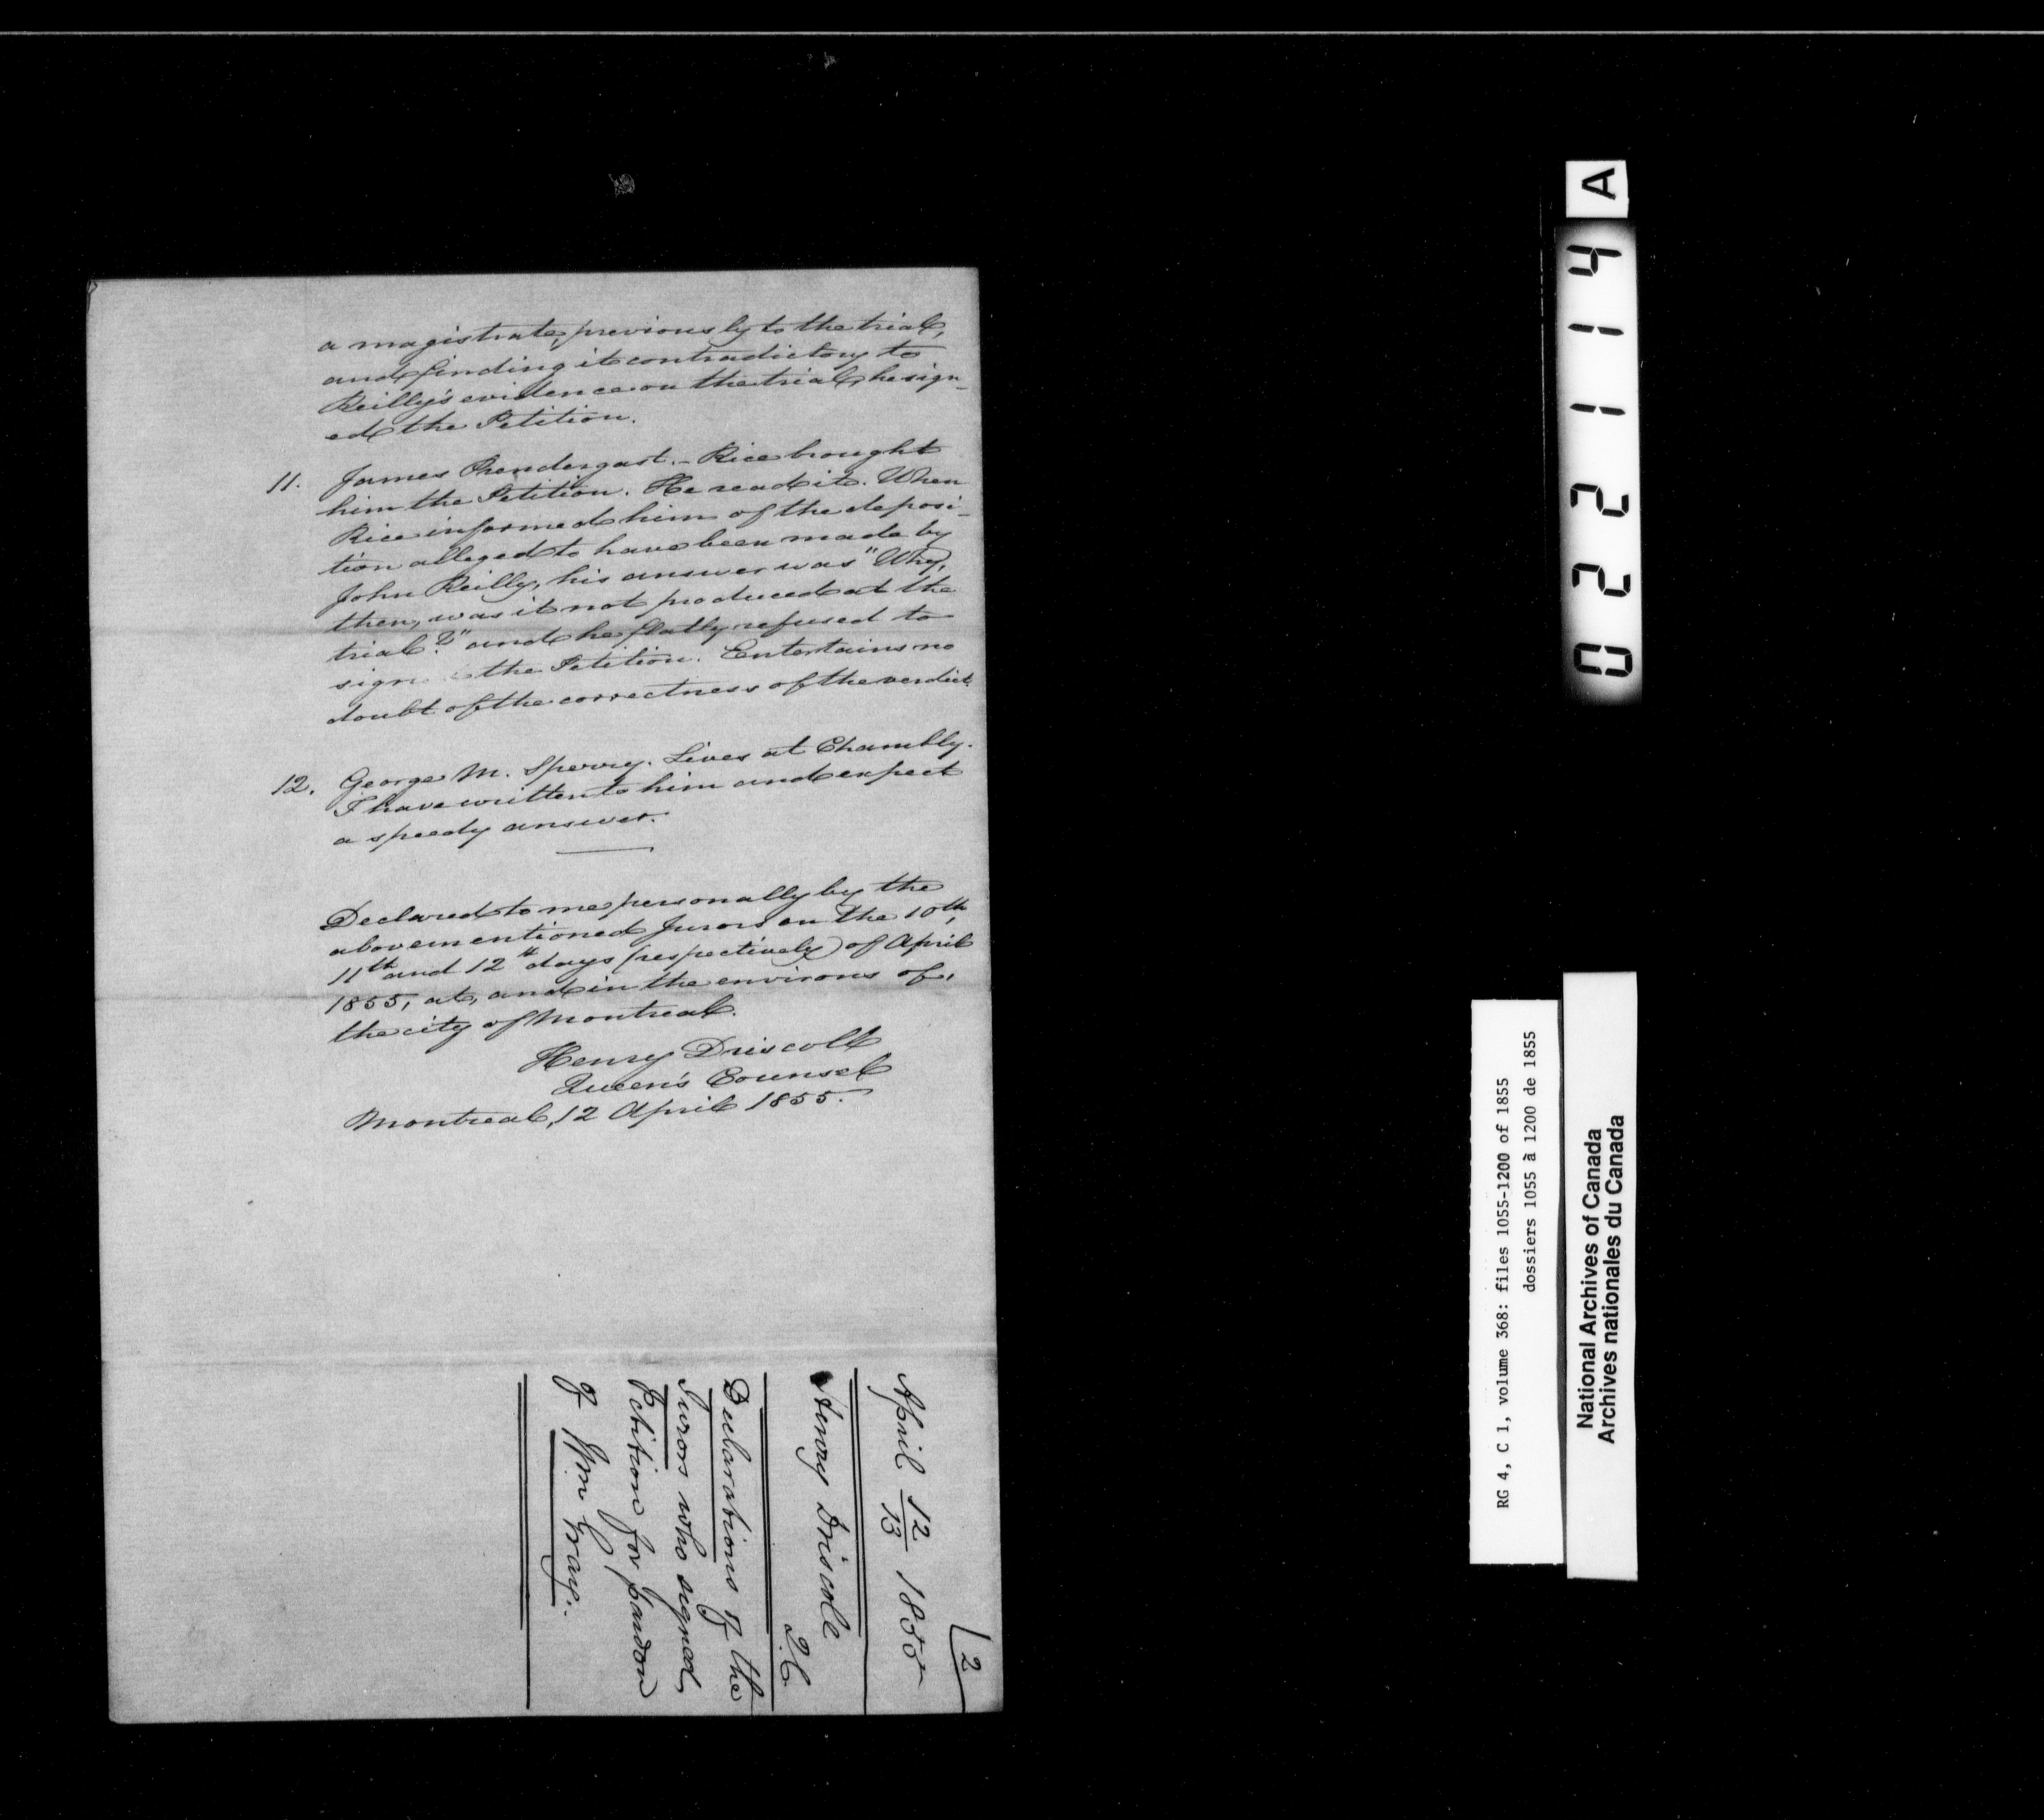 a magistrate, previously to the trial,
and finding it contradictory to
Reilly's evidence on the trial, he sign-
ed the Petition.
11. James Prendergast. - Rice brought
him the Petition. He read it. When
Rice informed him of the deposi-
tion alleged to have been made by
John Reilly, his answer was "Why,
then, was it not produced at the
trial?" and he flatly refused to
sign the Petition. Entertains no
doubt of the correctness of the verdict.
12. George M. Sperry. Lives at Chambly.
I have written to him and expect
a speedy answer.
Declared to me personally by the
abovementioned Jurors on the 10th,
11th and 12th days (respectively) of April
1855, at, and in the environs of,
the city of Montreal.
Henry Driscoll
Queen's Counsel
Montreal, 12 April 1855.
2
April 12/13 1855
Henry Driscoll
Q.C.
Declarations of the
Jurors who signed
Petition for pardon
of Wm Gray.
A
022114
RG 4, C 1, volume 368: files 1055-1200 of 1855
dossiers 1055 à 1200 de 1855
National Archives of Canada
Archives nationales du Canada